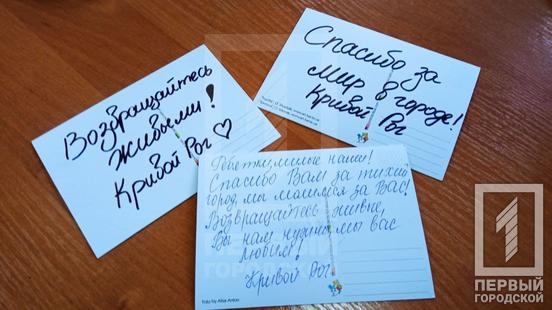 Возвращайтесь
живыми!
Кривой Рог
Спасибо за
мир в городе!
Кривой Рог
Ребятки, милые наши!
Спасибо Вам за тихий
город, мы молимся за Вас!
Возвращайтесь живые,
Вы нам нужны мы вас
любим!
Кривой Рог
foto by Alisa Anton
1
ПЕРВЫЙ
ГОРОДСКОЙ